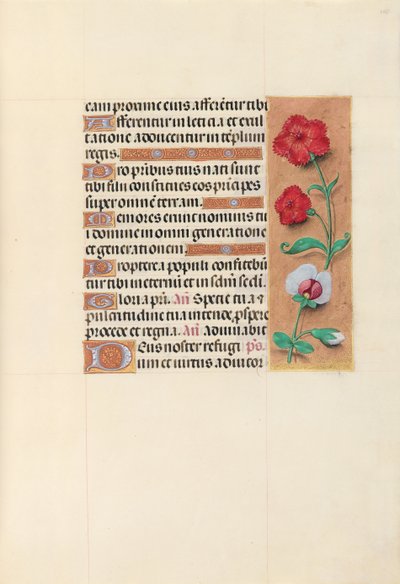 eam proxime eius afferẽtur tibi
Afferentur in leticia et exul
tatione adducentur in tẽplum
regis.
Pro patribus tuis nati sunt
tibi filii constitues eos prĩcipes
super omnẽ terram.
Memores erunt nominis tu
i domine in omni generatione
et generationem.
Propterea populi confitebũ
tur tibi in eternũ et in sclm̃ scli.
Gloria pr̃i. Añ Specie tua &
pulcritudine tua intende, ꝓspere
procede et regna. Añ Adiuuabit
Deus noster refugi ps.
um et uirtus adiutor